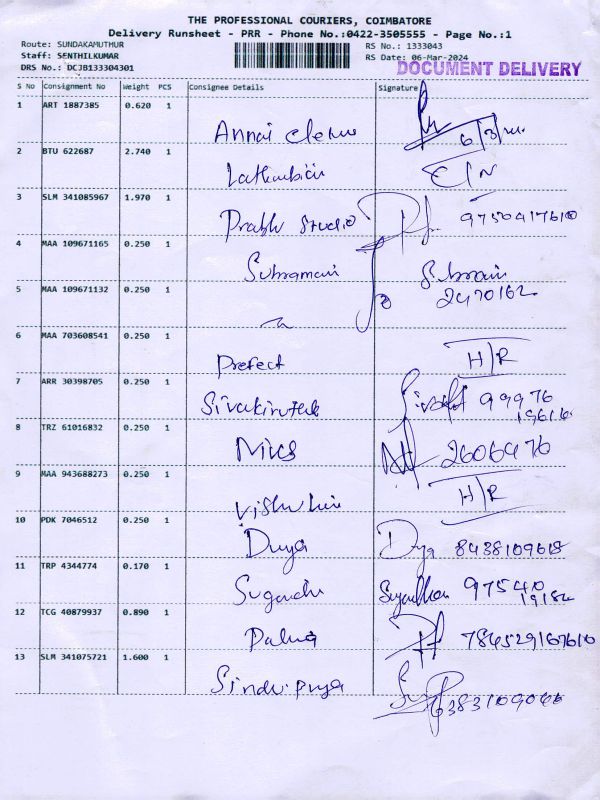 THE PROFESSIONAL COURIERS, COIMBATORE
Delivery Runsheet - PRR - Phone No.:0422-3505555 - Page No.:1
Route: SUNDAKAMUTHUR RS No.: 1333043
Staff: SENTHILKUMAR RS Date: 06-Mar-2024
DRS No.: DCJB133304301 DOCUMENT DELIVERY
S No Consignment No Weight PCS Consignee Details Signature
1 ART 1887385 0.620 1
Annai 6/3/
2 BTU 622687 2.740 1
3 SLM 341085967 1.970 1
Prabhu Studio 9750417610
4 MAA 109671165 0.250 1
Subramani
2470162
5 MAA 109671132 0.250 1
6 MAA 703608541 0.250 1
Prefect H/R
7 ARR 30398705 0.250 1
99976
8 TRZ 61016832 0.250 1
2606476
9 MAA 943688273 0.250 1
H/R
10 PDK 7046512 0.250 1
Divya Divya 8438109618
11 TRP 4344774 0.170 1
97540
19182
12 TCG 40879937 0.890 1
13 SLM 341075721 1.600 1
Sindu priya